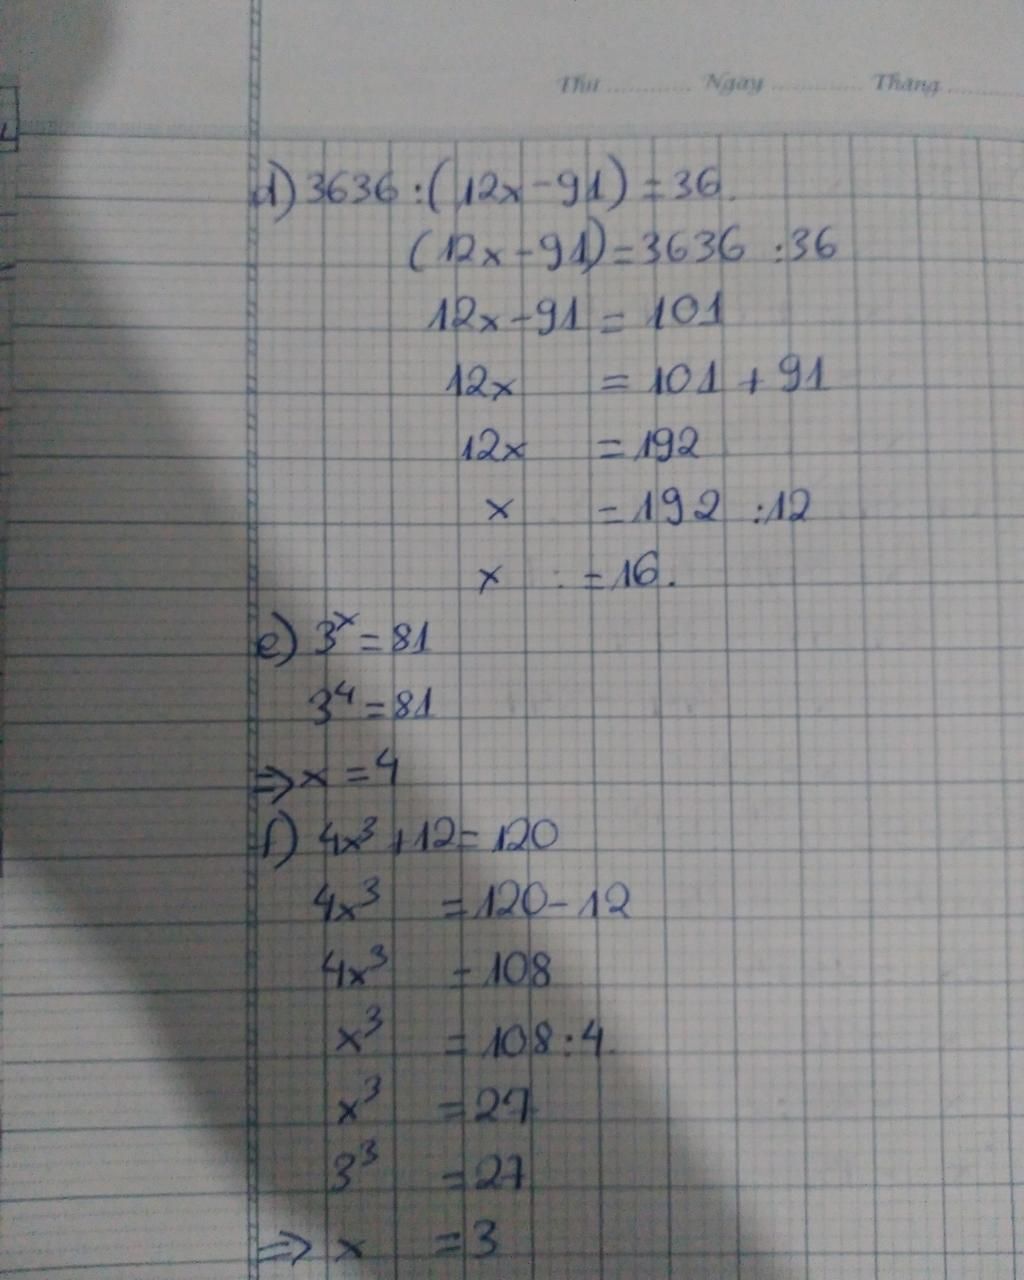 Thứ ............ Ngày ............ Tháng ............
d) 3636 : (12x - 91) = 36.
(12x - 91) = 3636 : 36
12x - 91 = 101
12x = 101 + 91
12x = 192
x = 192 : 12
x = 16.
e) 3ˣ = 81
3⁴ = 81
⇒ x = 4
f) 4x³ + 12 = 120
4x³ = 120 - 12
4x³ = 108
x³ = 108 : 4
x³ = 27
3³ = 27
⇒ x = 3